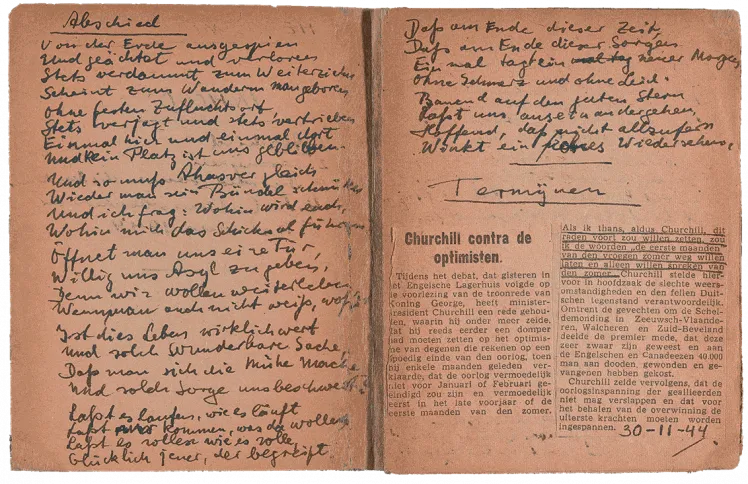 Abschied
Von der Erde ausgespien
Und geächtet und verloren
Stets verdammt zum Weiterziehn
Scheint zum Wandern man geboren
Ohne festen Zufluchtsort
Stets verjagt und stets vertrieben
Einmal hier und einmal dort
Und kein Platz ist uns geblieben.
Und so muß Ahasver gleich
Wieder man sein Bündel schnüren
Und ich frag: Wohin wird euch,
Wohin mich das Schicksal führen
Öffnet man uns eine Tür,
Willig uns Asyl zu geben,
Denn wir wollen weiterleben
Wenn man auch nicht weiß, wofür
Ist dies Leben wirklich wert
Und solch wunderbare Sache,
Daß man sich die Mühe mache
Und solch Sorge uns beschwert?
Laßt es laufen, wie es läuft
Laßt kommen, was da wolle
Laßt es rollen wie es rolle,
Glücklich jener, der begreift.
Daß am Ende dieser Zeit,
Daß am Ende dieser Sorgen
Einmal tagt ein neuer Morgen
Ohne Schmerz und ohne Leid.
Bauend auf den guten Stern
Laßt uns auseinandergehen,
Hoffend, daß nicht allzufern
Winkt ein Wiedersehens,
Termijnen
Churchill contra de
optimisten.
Tijdens het debat, dat gisteren in
het Engelsche Lagerhuis volgde op
de voorlezing van de troonrede van
Koning George, heeft minister-
president Churchill een rede gehou-
den, waarin hij onder meer zeide,
dat hij reeds eerder een domper
had moeten zetten op het optimis-
me van degenen die rekenen op een
spoedig einde van den oorlog, toen
hij enkele maanden geleden ver-
klaarde, dat de oorlog vermoedelijk
niet voor Januari of Februari ge-
eindigd zou zijn en vermoedelijk
eerst in het late voorjaar of de
eerste maanden van den zomer.
Als ik thans, aldus Churchill, dit
raden voort zou willen zetten, zou
ik de woorden „de eerste maanden"
van den vroegen zomer weg willen
laten en alleen willen spreken van
den zomer. Churchill stelde hier-
voor in hoofdzaak de slechte weers-
omstandigheden en den fellen Duit-
schen tegenstand verantwoordelijk.
Omtrent de gevechten om de Schel-
demonding in Zeeuwsch-Vlaande-
ren, Walcheren en Zuid-Beveland
deelde de premier mede, dat deze
zeer zwaar zijn geweest en aan
de Engelschen en Canadeezen 40.000
man aan dooden, gewonden en ge-
vangenen hebben gekost.
Churchill zeide vervolgens, dat de
oorlogsinspanning der geallieerden
niet mag verslappen en dat voor
het behalen van de overwinning de
uiterste krachten moeten worden
ingespannen. 30-11-44